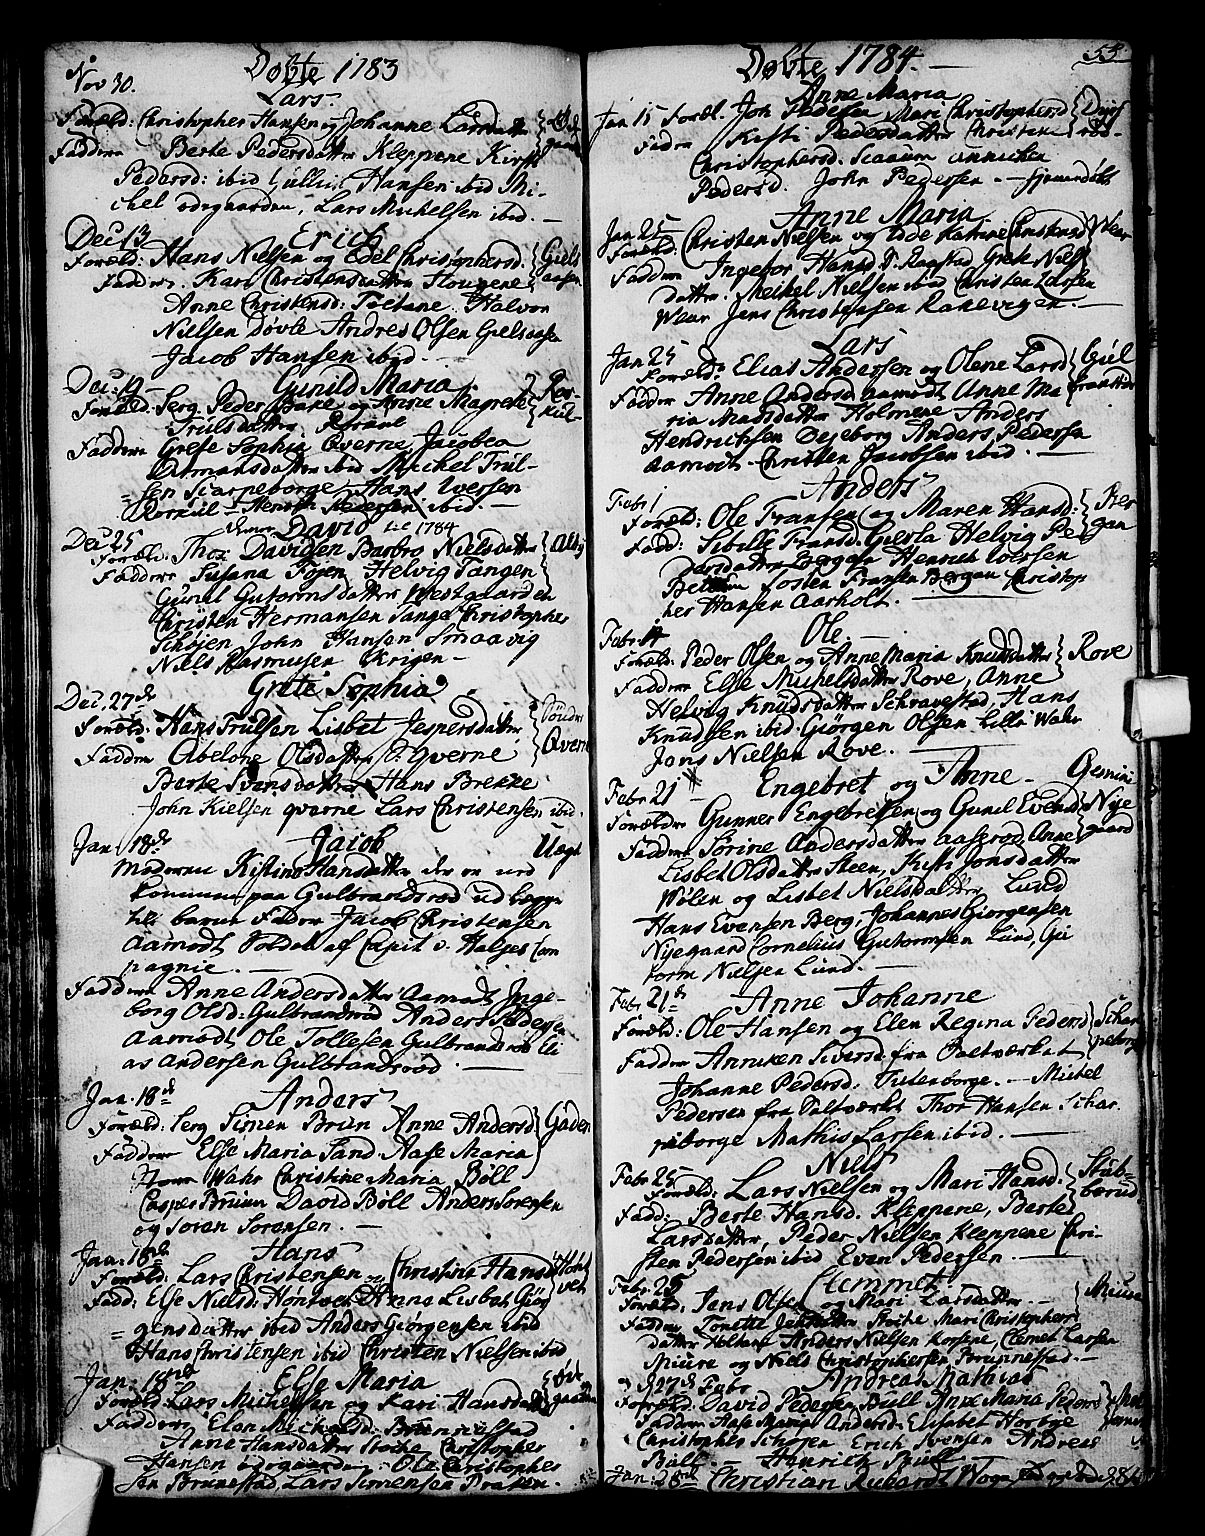 Døbte 1783
Nov 30.
Lars
Foræld: Christopher Hansen og Johanne Larsdatter
Faddere Berte Pedersdatter Kleppene Kirsti
Pedersd: ibid Gullich Hansen ibid Mi-
chel ødegaarden, Lars Michelsen ibid. —
Dec 13
Erich
Foræld: Hans Nielsen og Edel Christophersd: Giels
Faddere. Kari Christensdatter Hougene aasen
Anne Christensd: Halvor
Nielsen Døvle Andres Olsen Gielsaasen
Jacob Hansen ibid. —
Dec:
Gunild Maria
Foræld. Serg. Peder Bake og Anne Magrete
Trulsdatter
Faddere Grete Sophia Qverne, Jacobea
datter ibid Michel Trul-
sen Scarpeborge Hans Iversen
Pedersen ibid. —
David
1784
Dec: 25
Foræld: Thor Davidsen Barbro Nielsdatter
Faddere Susana Føyen Helvig Tangen
Gunil Gutormsdatter Westgaarden
Christen Hermansen Tange Christopher
Schøjen John Hansen Smaavig
Niels Rasmusen Krigen —
Grete Sophia
Dec. 27de
Foræld: Hans Trulsen Lisbet Jespersdatter Søndre
Faddere Abelone Olsdatter S. Qverne Qverne
Berte Svensdatter Hans Brekke
John Kielsen qverne Lars Christensen ibid.
Jacob
Jan: 18de
Moderen Kistine Hansdatter der er ned
kommen paa Gulbrandsrød ud lægger
til barne Fader Jacob Christensen
Aamodt Soldat af Capit v. Halses Com
pagnie. —
Faddere Anne Andersdatter Aamodt Inge-
borg Olsd: Gulbrandsrød Anders Pedersen
Aamodt Ole Tollefsen Gulbrandsrød Eli
as Andersen Gulbrandsrød. —
Jan: 18de
Anders
Foræld: Serg Simen Brun Anne Andersd Gaden
Faddere Else Maria Sand Aase Maria
Wahr Christine Maria Böll
Casper Bruun David Böll Anders Sørensen
og Søren Sørensen. —
Jan: 18de
Hans
Foræld: Lars Christensen og Christine Hansd
Fadd: Else Nielsd: Høntvet Anne Lisbet Giør
gensdatter ibid Anders Giørgensen ibid
Hans Christensen ibid Christen Nielsen ibid
Jan: 18de
Else Maria
Foræld Lars Michelsen og Kari Hansdatter
Faddere Elen Brunnestad
Anne Hansdatter Stoche Christopher
Hansen ødegaarden Ole Christopher
sen Brunnestad Lars Simensen Præsten.
Døbte 1784. —
55
Anne Maria
Jan 15 Foræl. Jon Pedersen Mari Christophersd
Faddere Kisti Pedersdatter Christine
Christophersd. Scaaum Annichen
Pedersd. John Pedersen —
Anne Maria
Jan 25
Foræld: Christen Nielsen og Edel Katrine Christensd Wear
Faddere Ingebor Hansd Grete Niels
datter. Meikel Nielsen ibid Christen Larsen
Wear Jens Christensen Rakevigen. —
Lars
Jan 25
Foræld: Elias Andersen og Olene Larsd
Faddere Anne Andersd aamodt Anne Ma
ria Madsdatter Holmene Anders
Hendrichsen Dejeborg Anders Pedersen
Aamodt Christen Jacobsen ibid. —
Anders
Febr 1
Foræld: Ole Fransen og Maren Hansd: Ber
Fadd: Sibille Fransd. Giertu Helvig Pe gan
dersdatter Bergan Henrich Iversen
Sosten Fransen Bergan Christop
her Hansen Aarholt. —
Ole
Febr 14
Foræld: Peder Olsen og Anne Maria Knudsdatter Rove
Faddere Else Michelsdatter Rove, Anne
Helvig Knudsdatter Schravestad, Hans
Knudsen ibid Giørgen Olsen Lille Wahr
Jens Nielsen Rove. —
Engebret og Anne — Gemini
Febr 21
Foræld: Gunner Engebretsen og Gunil Evensd Nye
Faddere Sørine Andersdatter aaserød, Anne gaard
Lisbet Olsdatter Steen, Kisti Jonsdatter
Wølen og Lisbet Nielsdatter Lund
Hans Evensen Berg Johannes Giørgensen
Nyegaard Cornelius Gutormsen Lund, Gu
torm Nielsen Lund. —
Febr 21de
Anne Johanne
Foræld: Ole Hansen og Elen Regina Pedersd Schar
Faddere Anniken Siversd: fra Saltværket peborge
Johanne Pedersd: Tutenborge. — Michel
Pedersen fra Saltværket Thor Hansen Schar
peborge Mathis Larsen ibid. —
Niels
Febr 25
Foræld: Lars Nielsen og Mari Hansd: Stub
Fadd: Berte Hansd. Kleppene, Berte berud
Larsdatter, Peder Nielsen Kleppene Chri-
sten Pedersen ibid Even Pedersen. —
Clemmet
Febr 25
Foræld. Jens Olsen og Mari Larsdatter. —
Faddere Tonette Jensdatter Stoche Mari Christophers
datter Holtan Anders Nielsen Korsene, Clemet Larsen
og Niels Christophersen Brunnestad. —
D 27de Febr
Andreas Mathias
Foræld. David Pedersen Büll Anne Maria Pedersd
Faddere Aase Maria Andersd: Elisabet Horbye
Christopher Schøjen Erich Svensen Andreas
Büll — Henrich Büll —
Jan: 28de Christian Rukardt